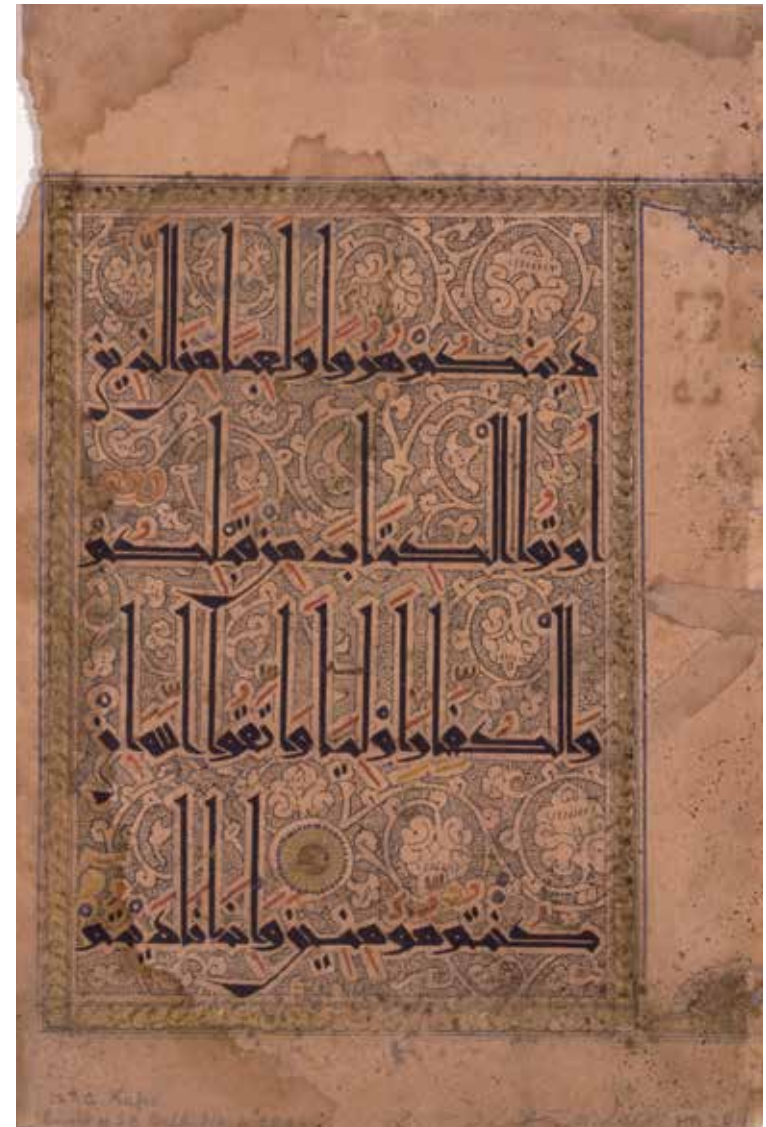 دِينَكُمْ هُزُوًا وَلَعِبًا مِنَ الَّذِينَ
أُوتُوا الْكِتَابَ مِنْ قَبْلِكُمْ
وَالْكُفَّارَ أَوْلِيَاءَ وَاتَّقُوا اللَّهَ إِنْ
كُنْتُمْ مُؤْمِنِينَ وَإِذَا نَادَيْتُمْ